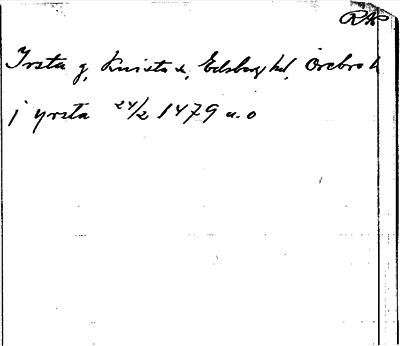 RAP
Irsta g, Knista s, Edsbergs hd, Örebro l
j yrsta 24/2 1479 u. o